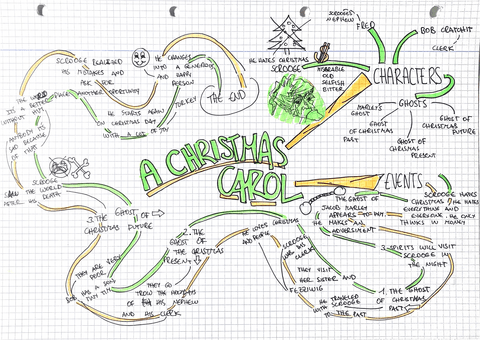 A CHRISTMAS
CAROL
CHARACTERS
SCROOGE'S
NEPHEW
FRED
BOB CRATCHIT
CLERK
HE HATES CHRISTMAS
SCROOGE
MISERABLE
OLD
SELFISH
BITTER
GHOSTS
MARLEY'S
GHOST
GHOST
OF CHRISTMAS
PAST
GHOST OF
CHRISTMAS
PRESENT
GHOST OF
CHRISTMAS
FUTURE
EVENTS
SCROOGE HATES
CHRISTMAS, HE HATES
EVERYTHING AND
EVERYONE. HE ONLY
THINKS IN MONEY
THE GHOST OF
JACOB MARLEY
APPEARS TO
HE MAKES AN
3 SPIRITS WILL VISIT
SCROOGE IN
THE NIGHT
1. THE GHOST
OF CHRISTMAS
PAST
HE TRAVELED
WITH SCROOGE
TO THE PAST
THEY VISIT
HER SISTER AND
FEZZIWIG
SCROOGE
WAS HIS
CLERK
HE LOVES CHRISTMAS
AND PEOPLE
2. THE
GHOST OF
THE CHRISTMAS
PRESENT
THEY GO
TROW THE HOUSES
OF HIS NEPHEW
AND HIS CLERK
THEY ARE VERY
POOR
BOB HAS A SON
TINY TIM
3. THE GHOST OF
CHRISTMAS FUTURE
SCROOGE
SAW THE WORLD
AFTER HIS DEATH
THE WORLD
IS A BETTER PLACE
WITHOUT HIM
ANYBODY IS
OF THAT
SCROOGE REALIZED
HIS MISTAKES AND
ASK FOR
ANOTHER OPORTUNITY
HE STARTS AGAIN
CHRISTMAS DAY
WITH A LOT OF JOY
TURKEY
HE CHANGES
INTO A GENEROUS
AND HAPPY
PERSON
THE END